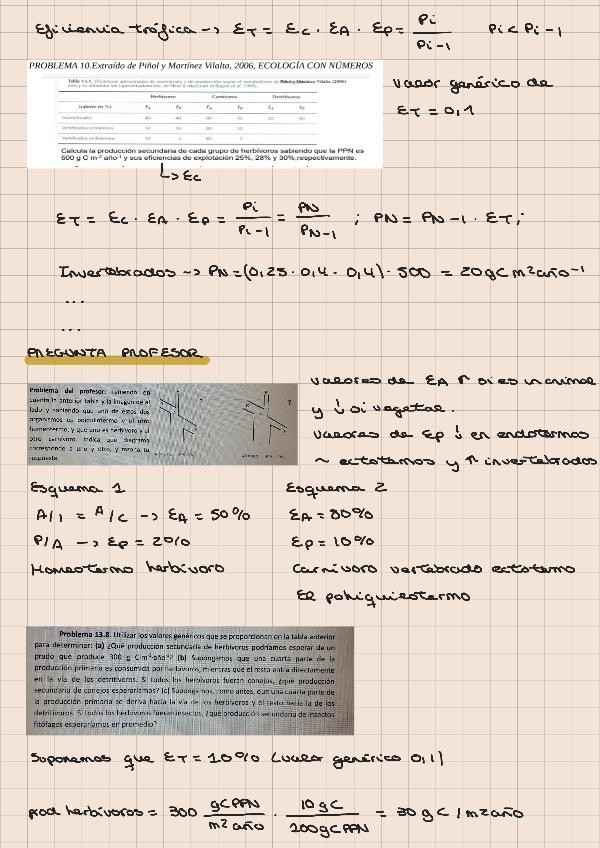 Eficiencia trófica → ET = EC · EA · EP = Pi / Pi-1   Pi < Pi-1
PROBLEMA 10.Extraído de Piñol y Martínez Vilalta, 2006, ECOLOGÍA CON NÚMEROS
valor genérico de
ET = 0,1
Herbívoros Carnívoros Detritívoros
(valores en %) EA EP EA EP EA EP
Invertebrados 40 40 80 30 20 40
Vertebrados ectotermos 50 10 80 10
Vertebrados endotermos 50 2 80 2
Calcula la producción secundaria de cada grupo de herbívoros sabiendo que la PPN es
500 g C m-2 año-1 y sus eficiencias de explotación 25%, 28% y 30%,respectivamente.
↳ EC
ET = EC · EA · EP = Pi / Pi-1 = PN / PN-1 ; PN = PN-1 · ET;
Invertebrados → PN = (0,25 · 0,4 · 0,4) · 500 = 20gC m²año-1
...
...
PREGUNTA PROFESOR
Problema del profesor: teniendo en
cuenta la anterior tabla y la imagen de al
lado y sabiendo que uno de estos dos
organismos es poiquilotermo y el otro
homeotermo, y que uno es herbívoro y el
otro carnívoro. Indica que diagrama
corresponde a uno y otro, y razona tu
respuesta.
valores de EA ↑ si es in animal
y ↓ si vegetal.
valores de EP ↓ en endotermos
~ ectotermos y ↑ invertebrados
Esquema 1
A/I = A/C → EA = 50%
P/A → EP = 2%
Homeotermo herbívoro
Esquema 2
EA = 80%
EP = 10%
Carnívoro vertebrado ectotermo
El pohiquiotermo
Problema 13.8. Utilizar los valores genéricos que se proporcionan en la tabla anterior
para determinar: (a) ¿Qué producción secundaria de herbívoros podríamos esperar de un
prado que produce 300 g C·m-2·año-1? (b) Supongamos que una cuarta parte de la
producción primaria es consumida por herbívoros, mientras que el resto entra directamente
en la vía de los detritívoros. Si todos los herbívoros fueran conejos, ¿qué producción
secundaria de conejos esperaríamos? (c) Supongamos, como antes, que una cuarta parte de
la producción primaria se deriva hacia la vía de los herbívoros y el resto hacia la de los
detritívoros. Si todos los herbívoros fueran insectos, ¿qué producción secundaria de insectos
fitófagos esperaríamos en promedio?
Suponemos que ET = 10% (valor genérico 0,1)
prod herbívoros = 300 gC PPN / m² año · 10 gC / 100gC PPN = 30 g C / m² año